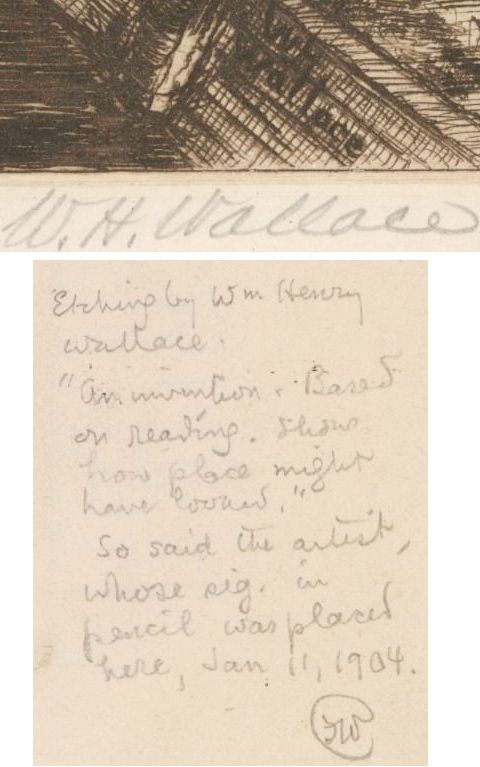 W.H.
Wallace
W. H. Wallace
Etching by Wm Henry
Wallace.
"An invention. Based
on reading. Shows
how place might
have looked."
So said the artist,
whose sig. in
pencil was placed
here, Jan 11, 1904.